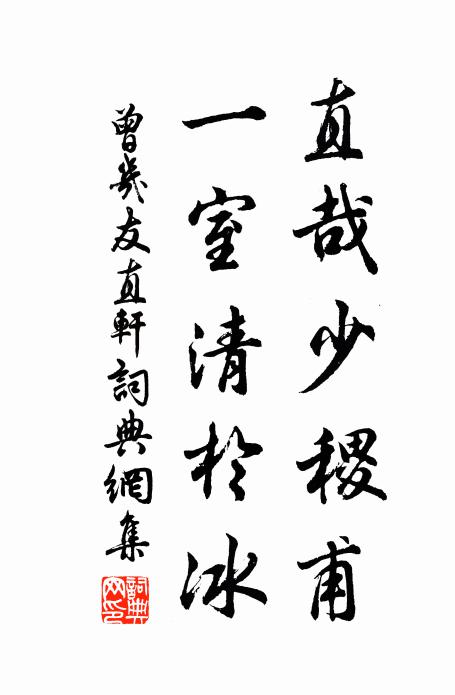 直哉少稷甫
一室清於冰
曾幾友直軒詞典網集
詞典网印